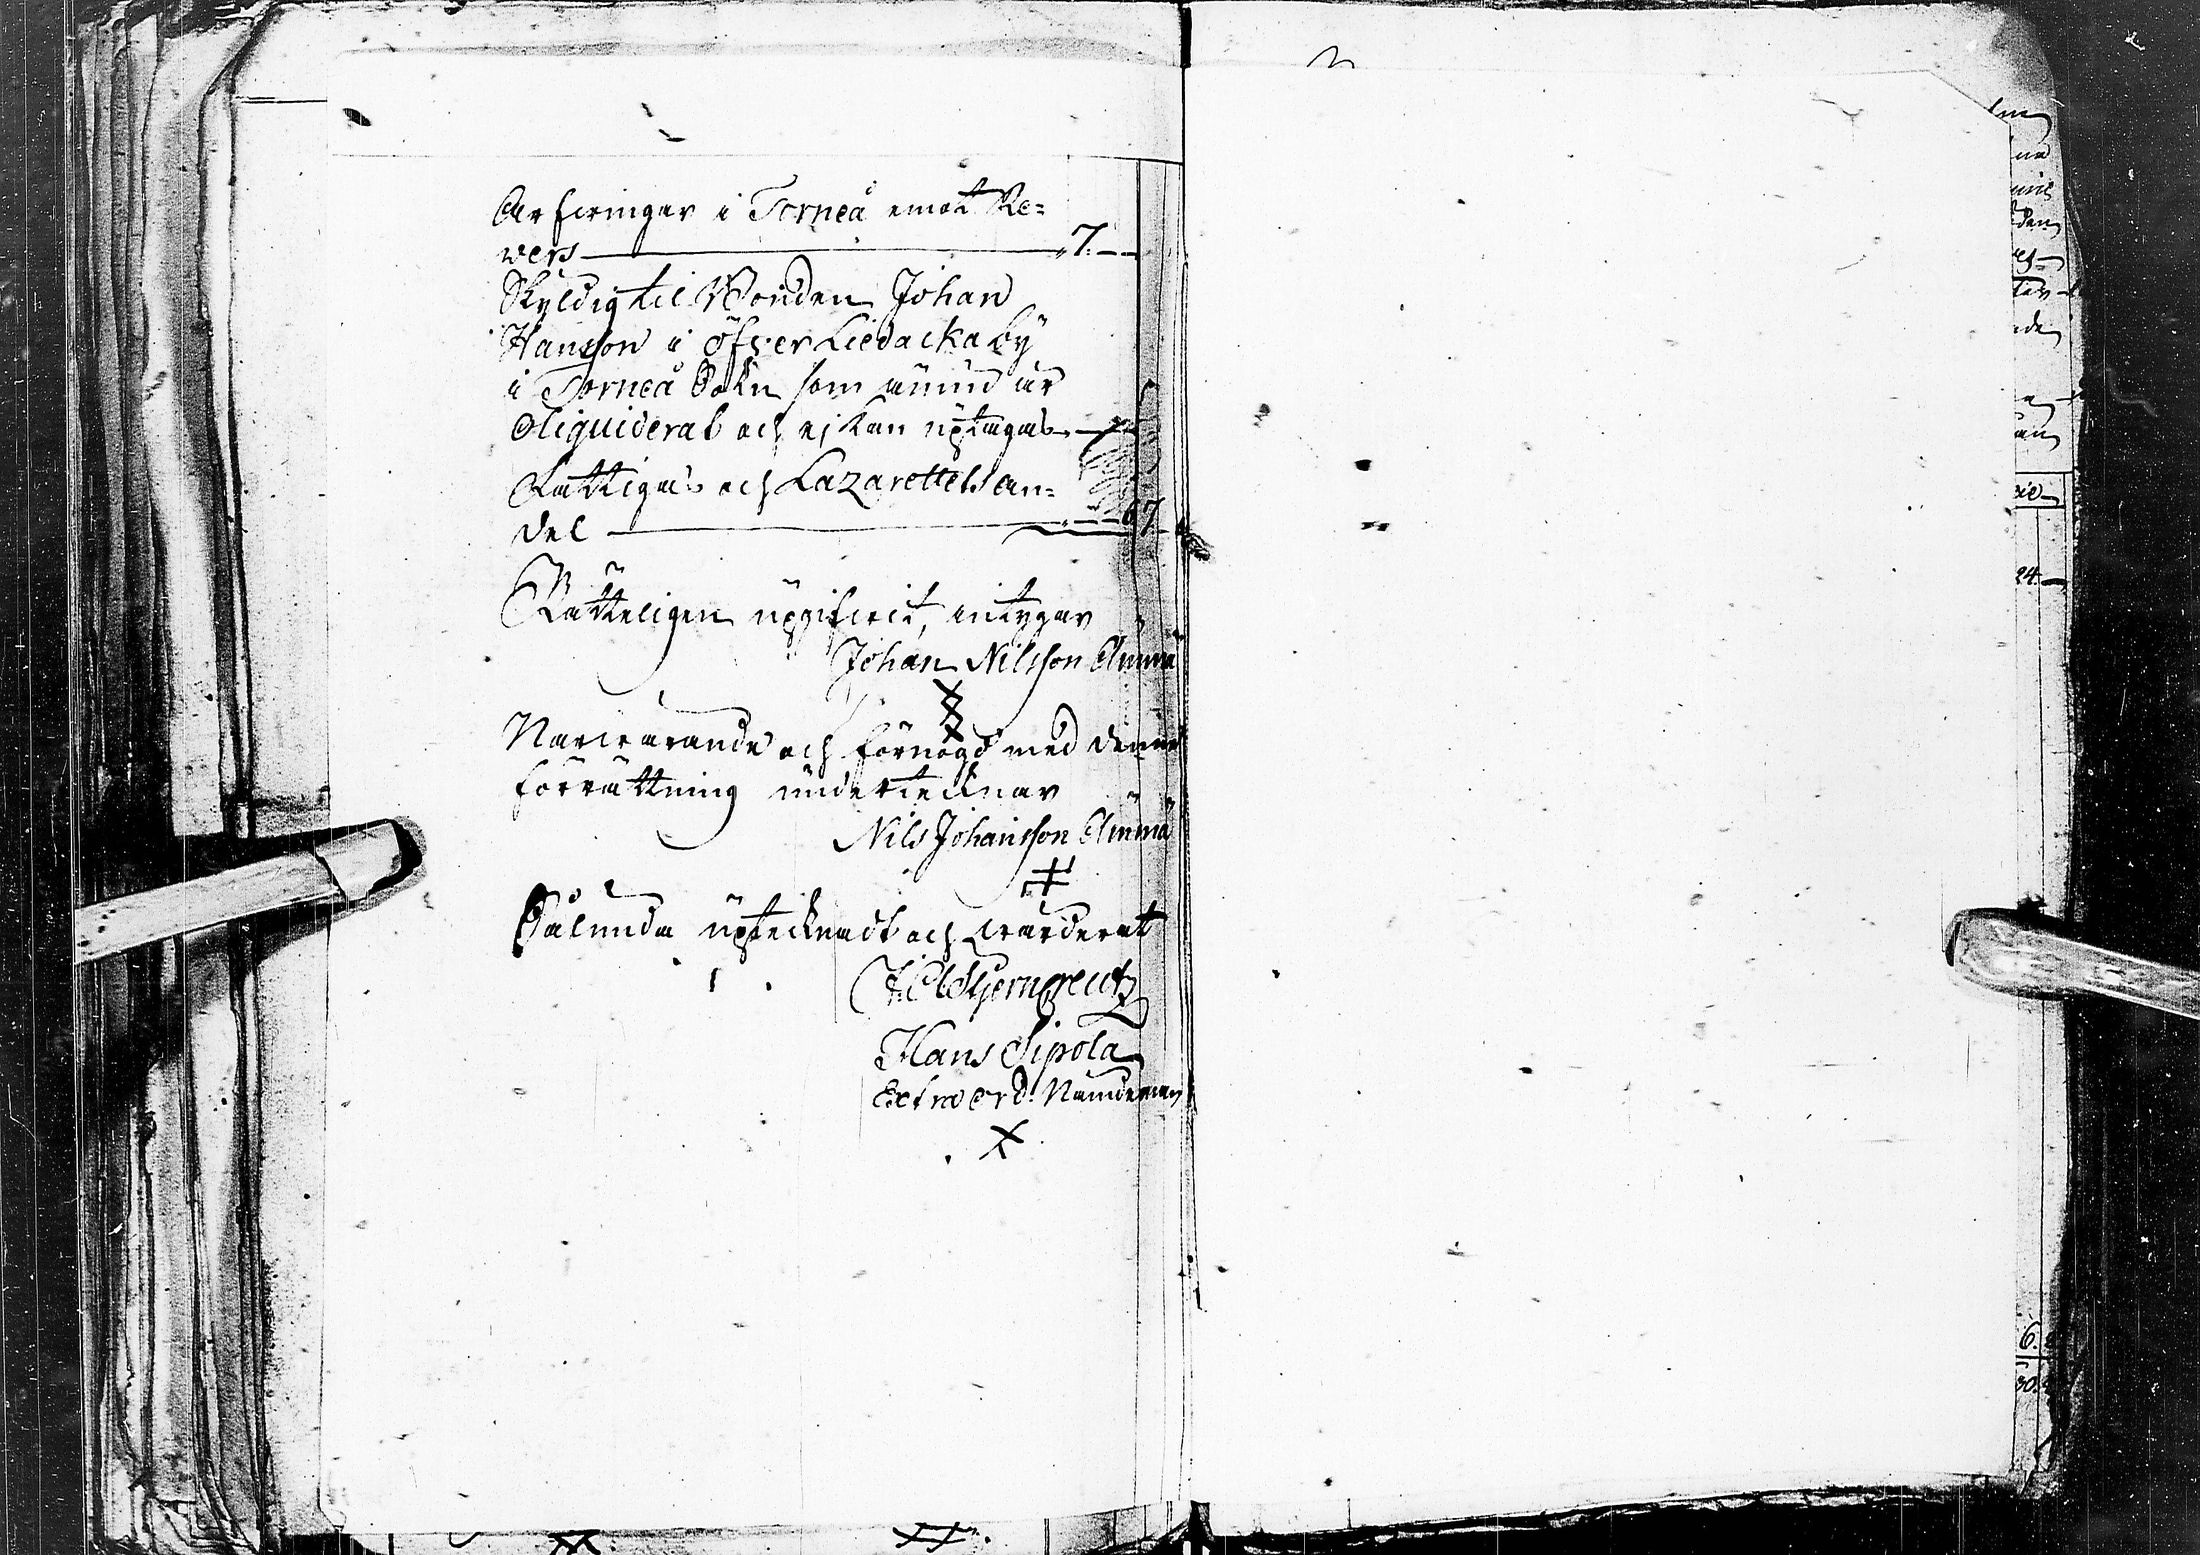 Arfwingar i Torneå emot Re=
vers 7.
Skyldig til Bonden Johan
Hansson i öfver Liedacka by
i Torneå Sokn som ännu är
Oliquiderat och ej kan uptagas
Fattigas och Lazarettets an=
del 67
Rätteligen upgifwit, intygar
Johan Nilsson
Närwarande och förnögd med denne
förrättning undertecknar
Nils Johansson
Sålunda uptecknadt och wärderat
Stjerncreutz
Hans Sipola
Extra ord. Nämdeman
24.
6.